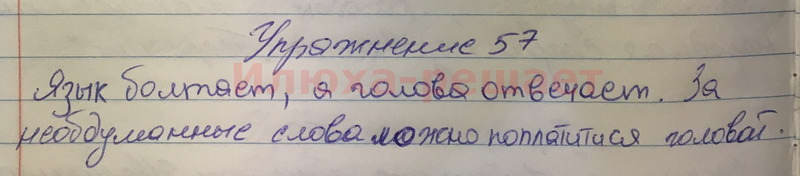 Упражнение 57
Илюха-решает
Язык болтает, а голова отвечает. За
необдуманные слова можно поплатится головой.